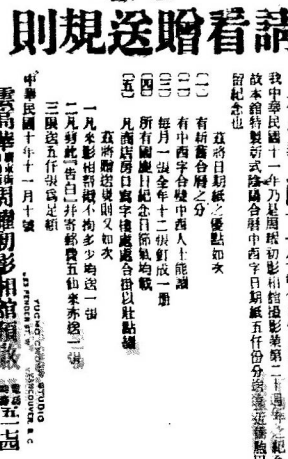 請看贈送規則
我中華民國十一年乃是周耀初影相館攝影業第二十週年之紀念
故本館特製新式陰陽合曆中西字日期紙五仟份分送遠近僑胞同
留紀念也
茲將日期紙之優點如次
(一) 有新舊合曆之分
(二) 有中西字合璧中西人士能讀
(三) 每月一張全年十二張釘成一冊
(四) 所有國慶日紀念日節氣均載
(五) 凡商店房口寫字樓處處合掛以壯點綴
茲將贈送規則又如次
一凡來影相諸君不拘多少均送一張
二凡剪此(告白)并寄郵費五仙來亦送一張
三限送五仟張為足額
中華民國十年十一月十號
雲高華
周耀初影相館頓啟
YUCHO CHOW STUDIO
PENDER ST. W. VANCOUVER, B. C.